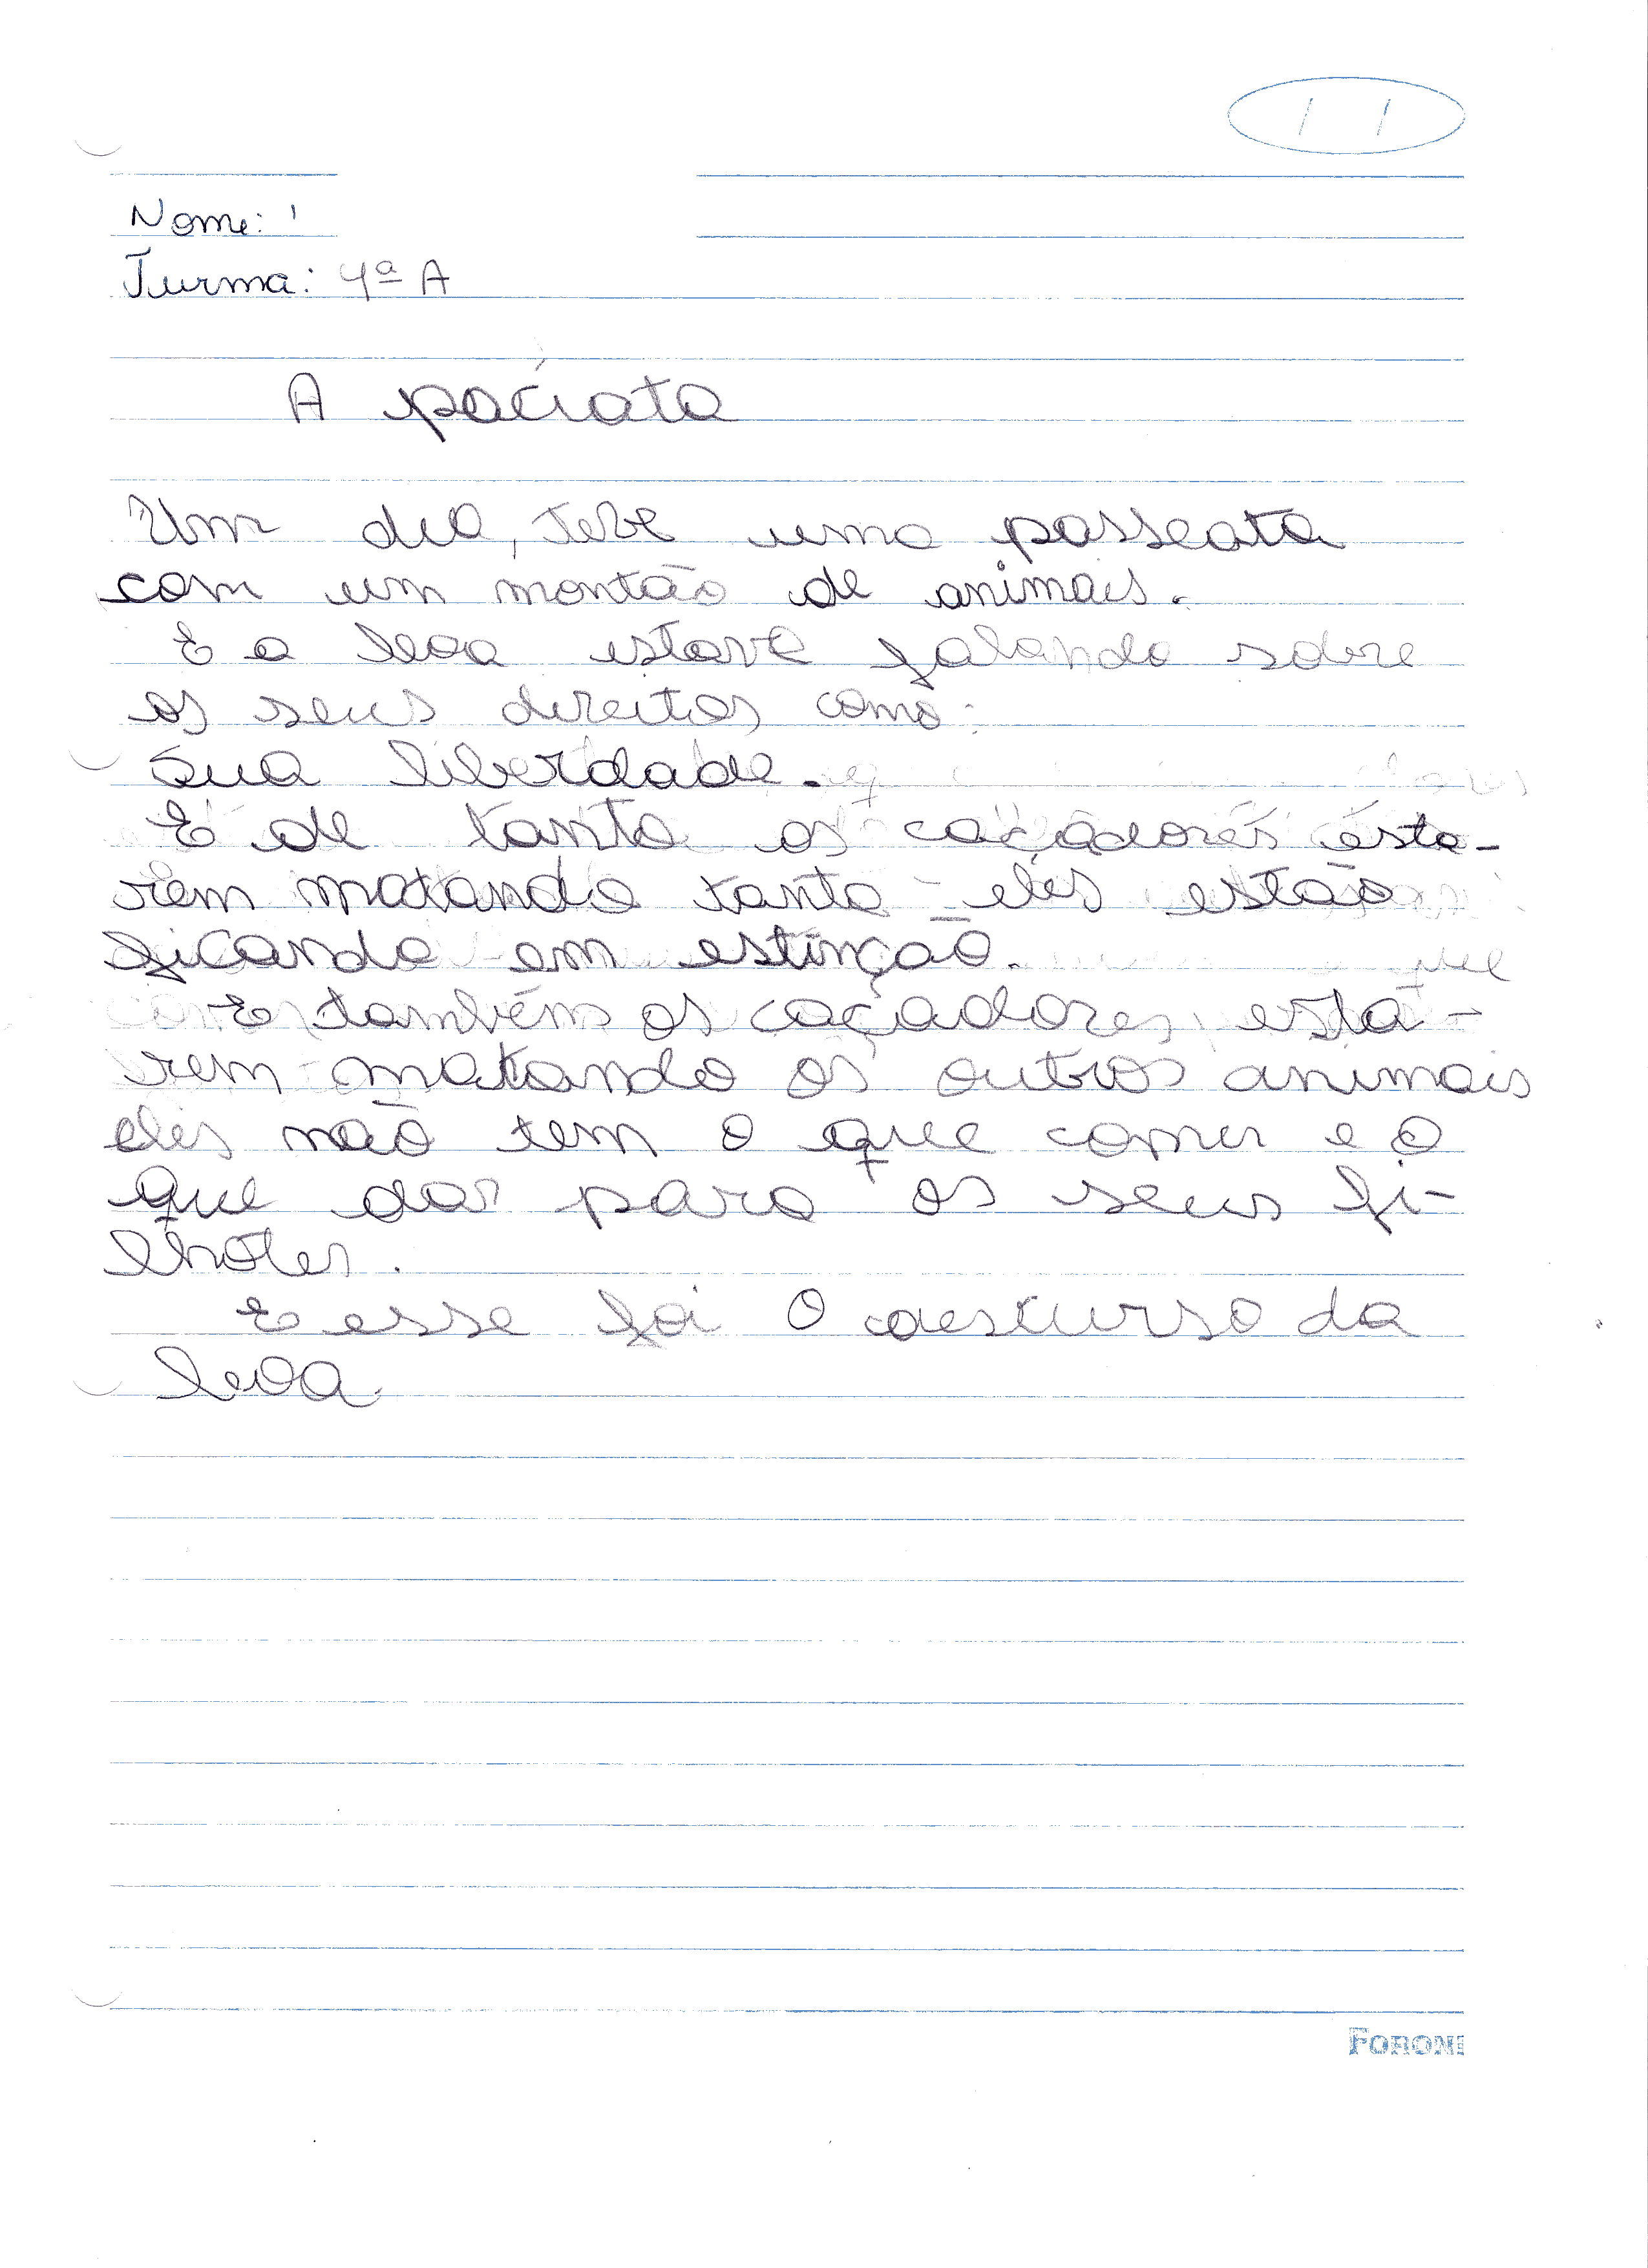 Nome:
Turma: 4ª A
A paciata
Um dia, teve uma passeata
com um montão de animais.
E a leoa estava falando sobre
os seus direitos como:
Sua liberdade.
E de tanto os caçadores esta-
rem matando tanto eles estão
ficando em estinção.
E também os caçadores, esta-
rem matando os outros animais
eles não tem o que comer e o
que dar para os seus fi-
lhotes.
E esse foi o descurso da
leoa.
FORONI